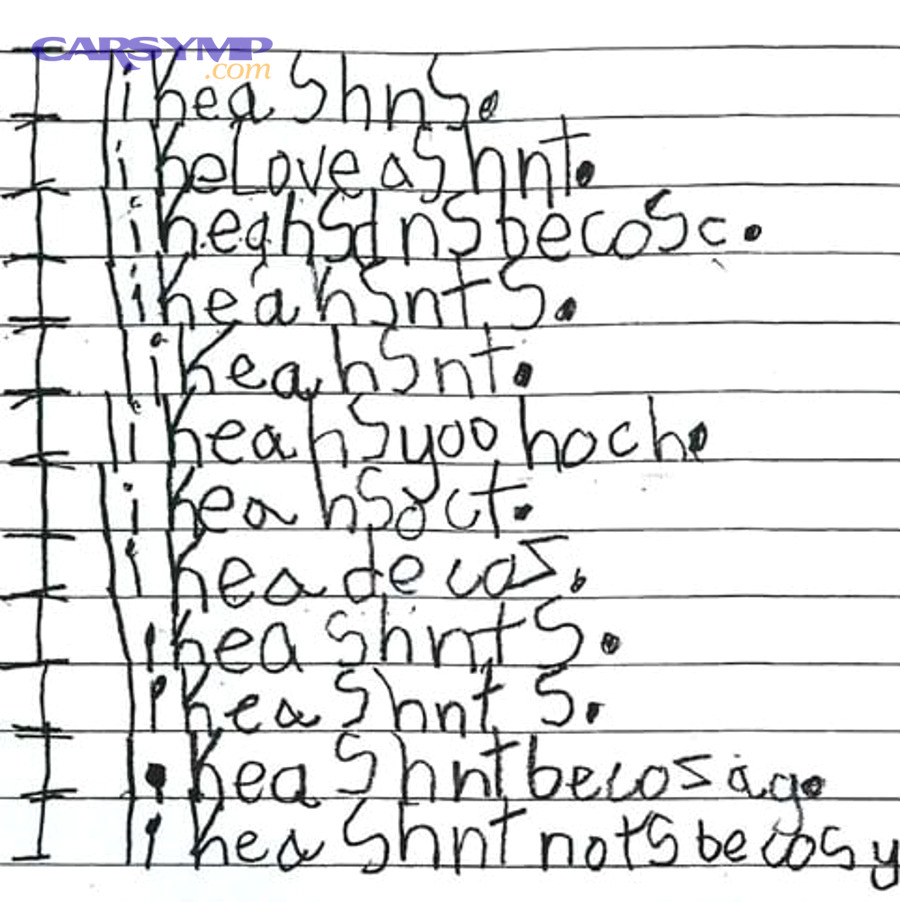 CARSYMP
.com
I like a ShnS.
I like Love aS hnt.
I like ahSdnS becoSc.
I like a hSntS.
I like a hSnt.
I like a hSyoo hoch.
I like a hSoct.
I like a decos.
I like a ShntS.
I like a Shnt S.
I like a Shnt becos ag.
I like a Shnt notS becoS y